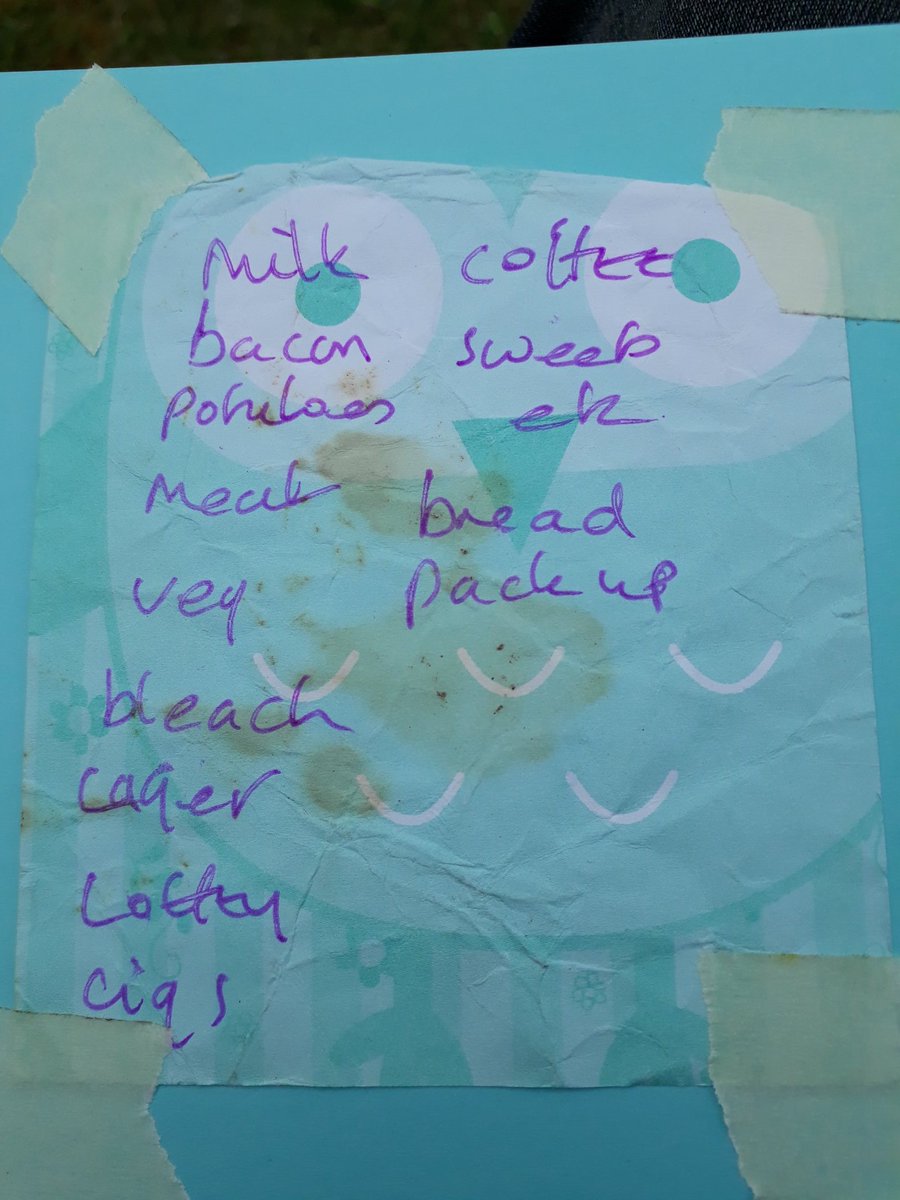 Milk
bacon
Potutaos
Meat
Veg
bleach
Lager
Lottery
Cigs
coffee
sweets
etc.
bread
Pack up